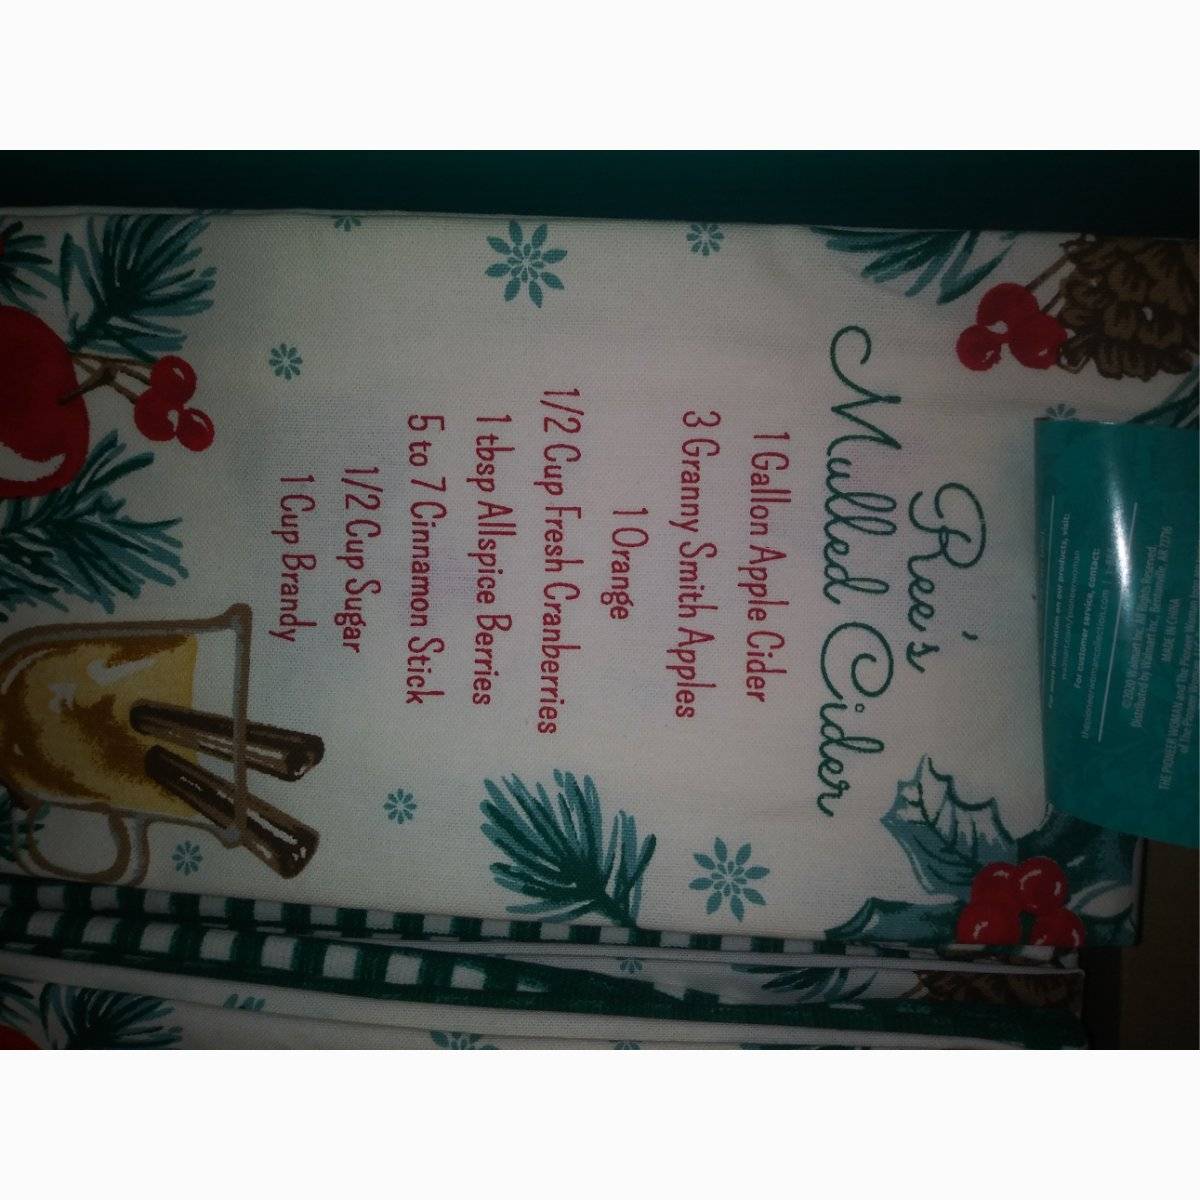 Ree's
Mulled Cider
1 Gallon Apple Cider
3 Granny Smith Apples
1 Orange
1/2 Cup Fresh Cranberries
1 tbsp Allspice Berries
5 to 7 Cinnamon Stick
1/2 Cup Sugar
1 Cup Brandy
For more information on our products, visit:
walmart.com/pioneerwoman
For customer service, contact:
thepioneerwomancollection.com
©2020 Walmart Inc. All Rights Reserved
Distributed by Walmart Inc., Bentonville, AR 72716
MADE IN CHINA
THE PIONEER WOMAN and The Pioneer Woman
of The Pioneer Woman